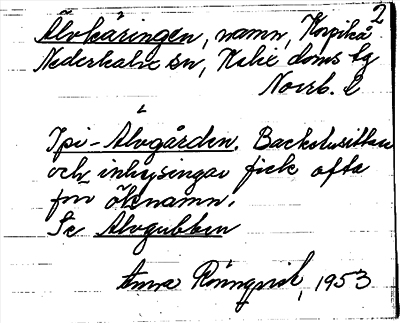 2
Älvkäringen, namn, Korpikå
Nederkalix sn, Kalix doms lg
Norrb. l
I pi - Älvgården. Backstusittare
och inhysingar fick ofta
för öknamn.
Se Älvgubben
Anna Rönnqvist, 1953